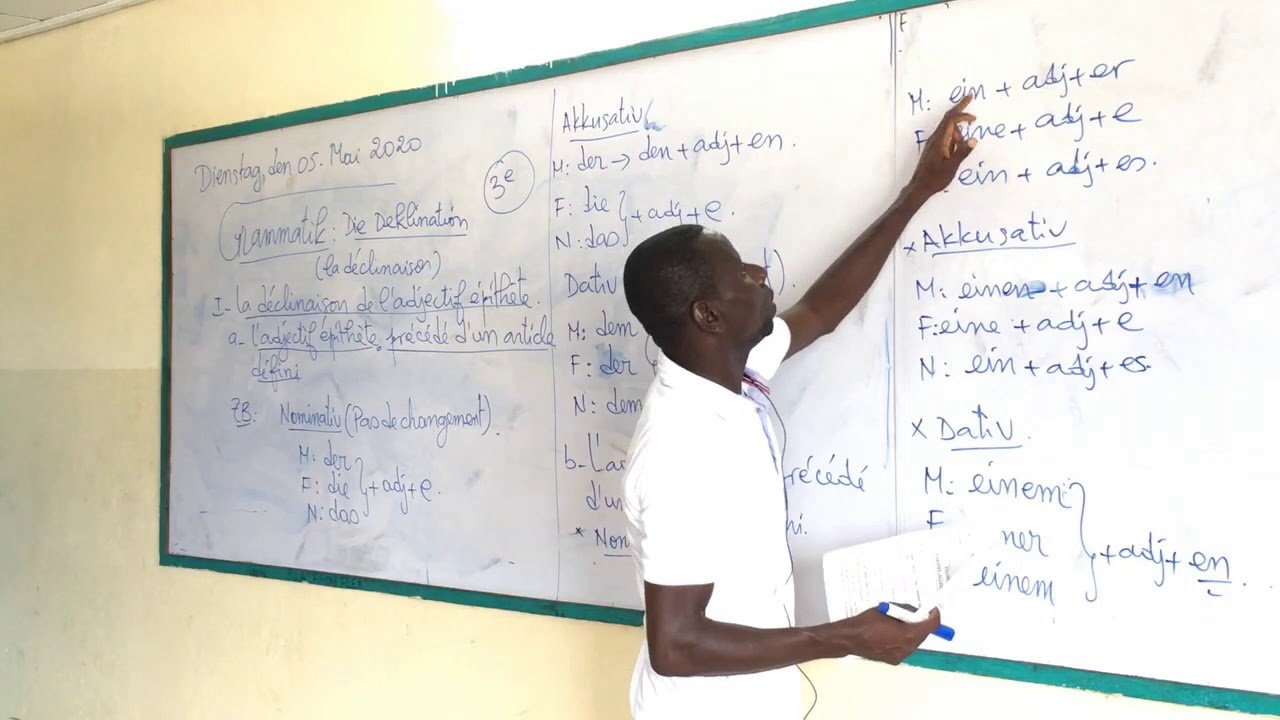 Dienstag, den 05. Mai 2020
3e
Grammatik: Die Deklination
(la déclinaison)
I- la déclinaison de l'adjectif épithète.
a- l'adjectif épithète, précédé d'un article
défini
ZB: Nominativ (Pas de changement)
M: der
F: die } + adj + e.
N: das
Akkusativ
M: der → den + adj + en.
F: die } + adj + e.
N: das
Dativ
M: dem
F: der
N: dem
b-
* Nom
F
M: ein + adj + er
F: eine + adj + e
ein + adj + es.
x Akkusativ
M: einen + adj + en
F: eine + adj + e
N: ein + adj + es
x Dativ
M: einem
F ner } + adj + en
einem